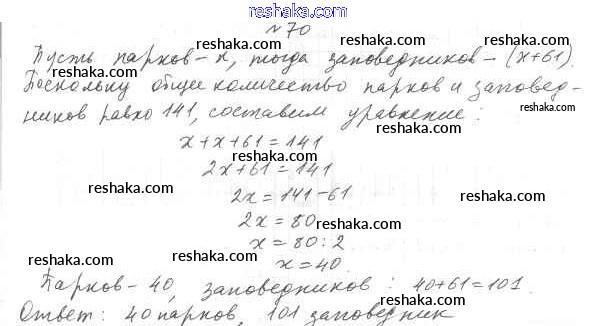 reshaka.com
№70
Пусть парков - x, тогда заповедников - (x+61).
reshaka.com reshaka.com
Поскольку общее количество парков и заповед-
reshaka.com
ников равно 141, составим уравнение:
reshaka.com reshaka.com
x+x+61=141
reshaka.com
2x+61=141
reshaka.com
2x=141-61
reshaka.com reshaka.com
2x=80
reshaka.com
x=80:2
reshaka.com
x=40.
reshaka.com reshaka.com
Парков - 40, заповедников: 40+61=101.
reshaka.com
Ответ: 40 парков, 101 заповедник
reshaka.com reshaka.com